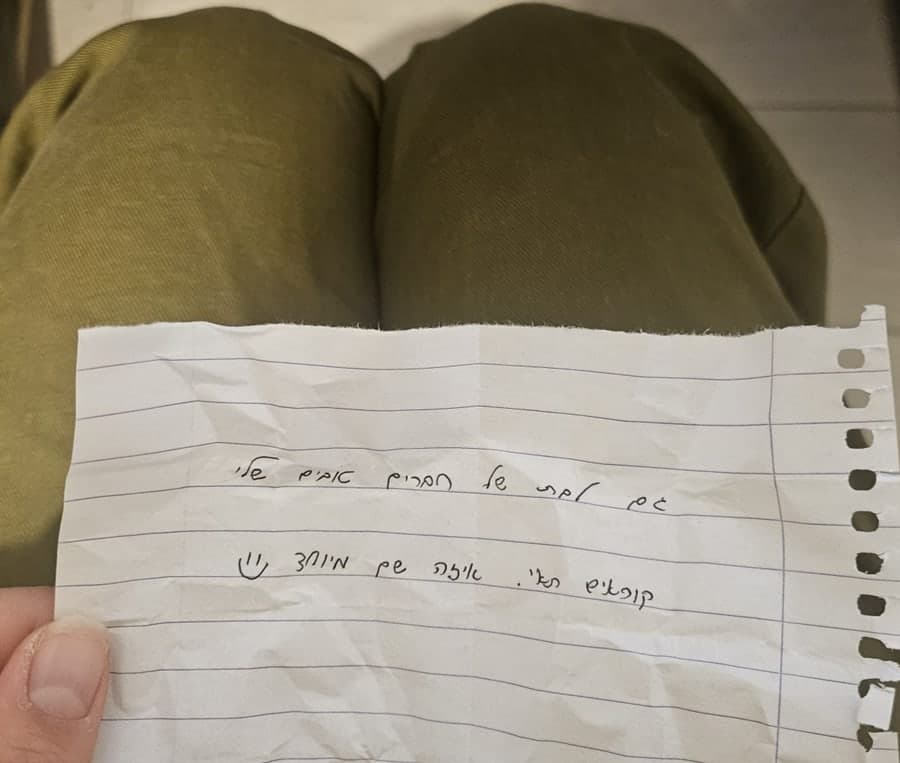 גם לבת של חברים טובים שלי
קוראים תאי. איזה שם מיוחד